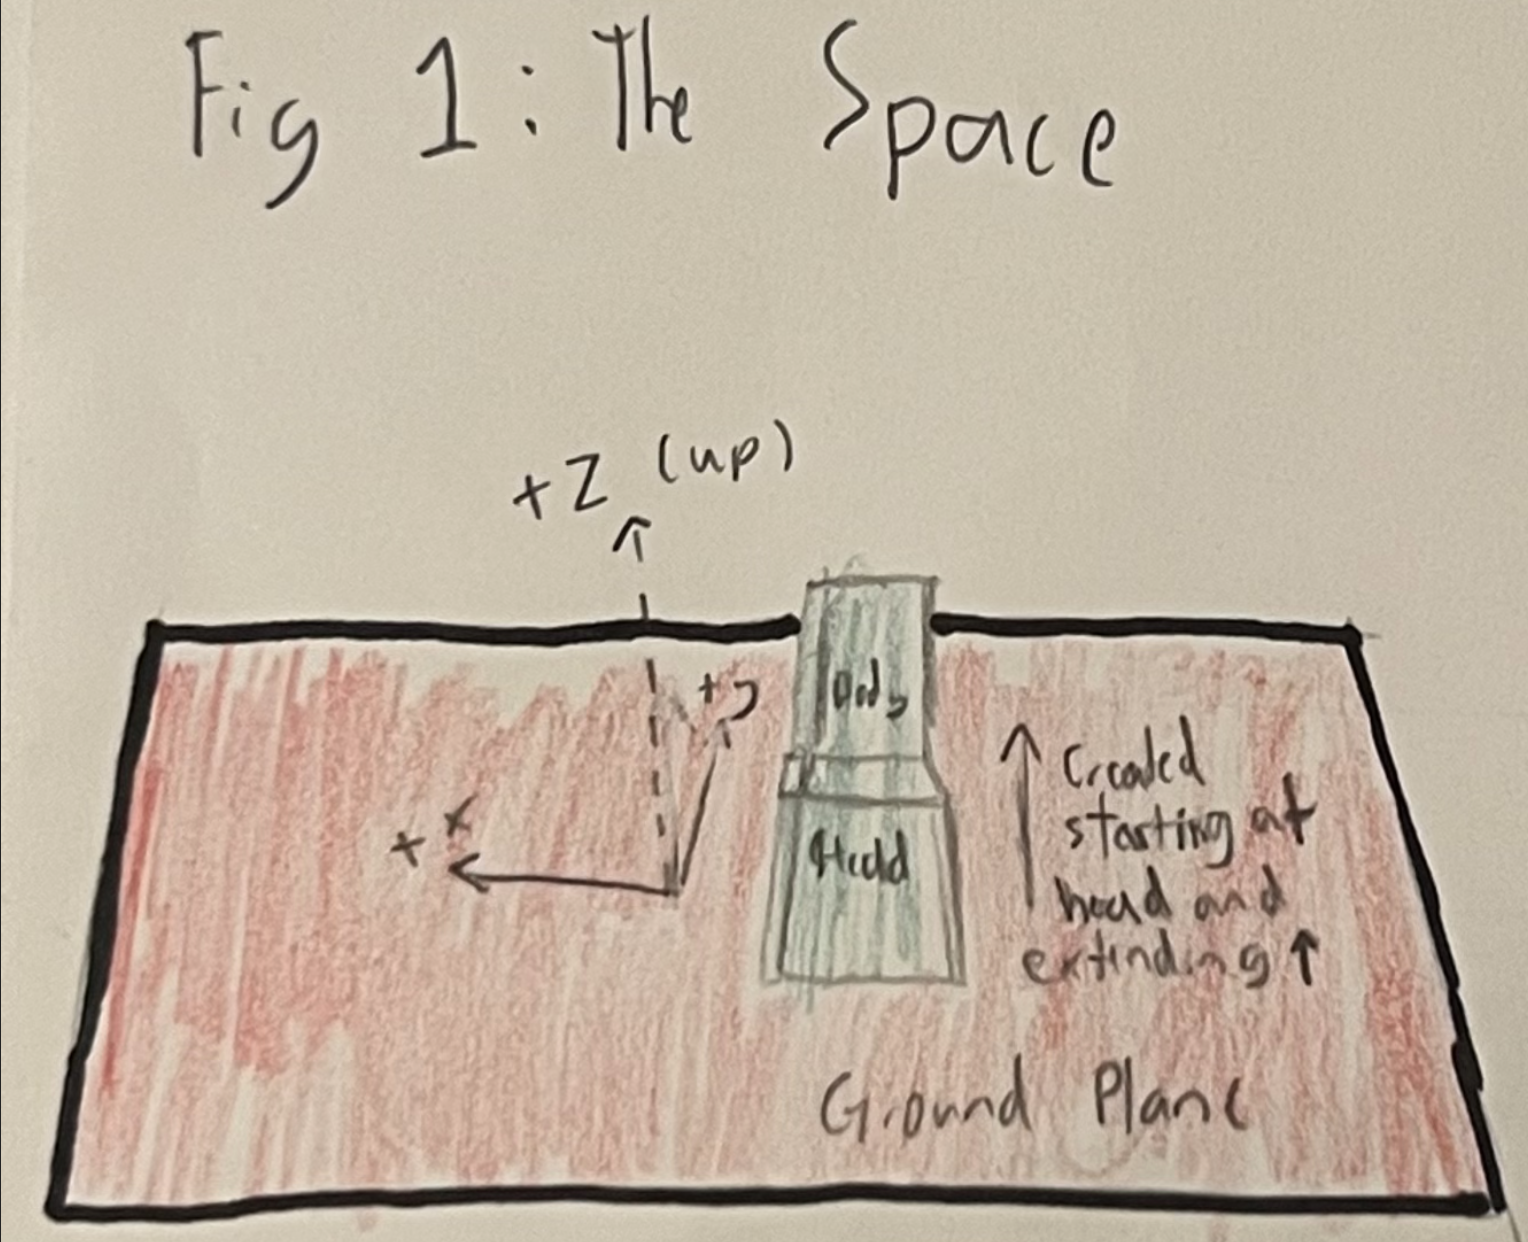 Fig 1: The Space
+Z (up)
+y
Body
+x
Head
Created
starting at
head and
extending ↑
Ground Plane